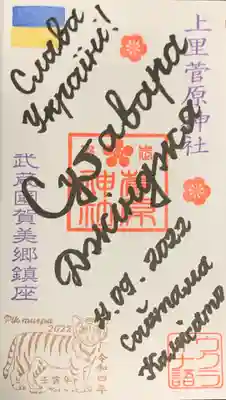 Слава
Україні!
上里菅原神社
Сугавара
Джинджя
11.09.2022
Сайтама
Камісато
武蔵国賀美郷鎮座
Рік тигра
2022
令和四年
壬寅年